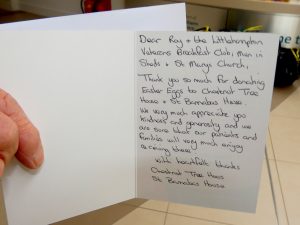 Dear Roy & the Littlehampton
Veterans Breakfast Club, Men in
Sheds & St Marys Church,
Thank you so much for donating
Easter Eggs to Chestnut Tree
House & St Barnabas House.
We very much appreciate your
kindness and generosity and we
are sure that our patients and
families will very much enjoy
receiving these
With heartfelt thanks
Chestnut Tree House
St Barnabas House